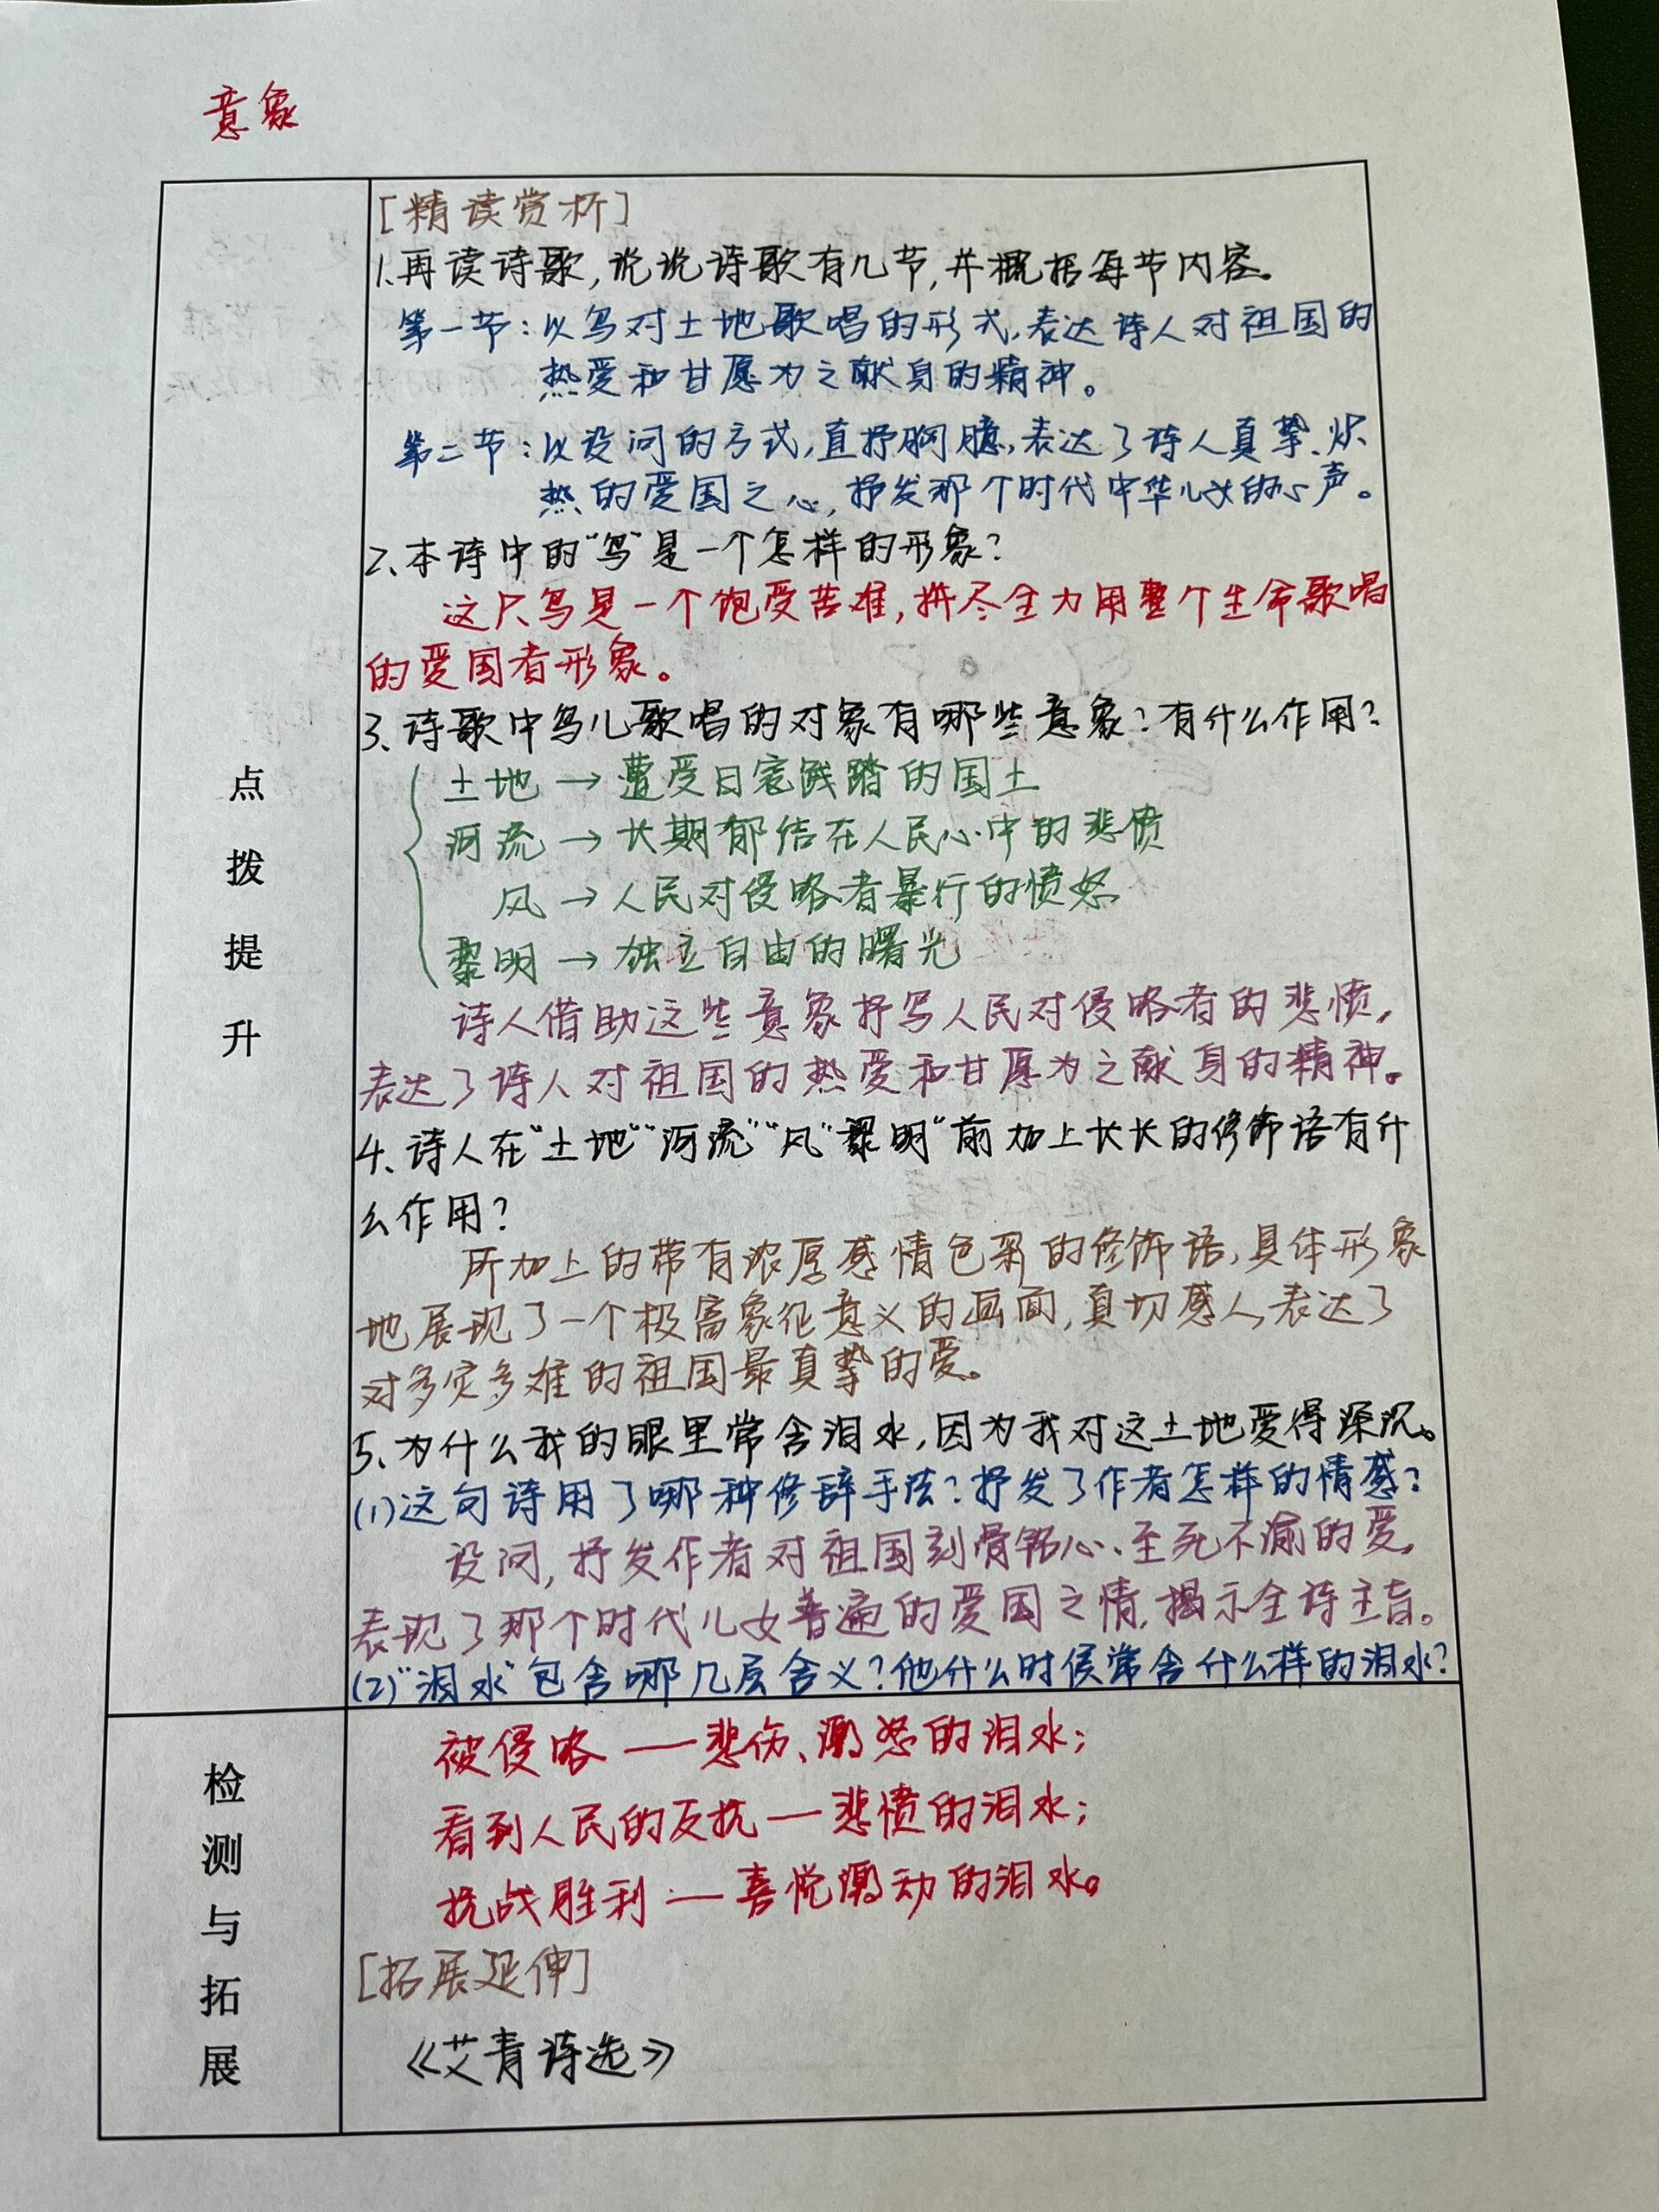 意象
[精读赏析]
1、再读诗歌,说说诗歌有几节,并概括每节内容。
第一节:以鸟对土地歌唱的形式,表达诗人对祖国的
热爱和甘愿为之献身的精神。
第二节:以设问的方式,直抒胸臆,表达了诗人真挚、炽
热的爱国之心,抒发那个时代中华儿女的心声。
2、本诗中的“鸟”是一个怎样的形象?
这只鸟是一个饱受苦难,拼尽全力用整个生命歌唱
的爱国者形象。
3、诗歌中鸟儿歌唱的对象有哪些意象?有什么作用?
土地→遭受日寇践踏的国土
河流→长期郁结在人民心中的悲愤
风→人民对侵略者暴行的愤怒
黎明→独立自由的曙光
诗人借助这些意象抒写人民对侵略者的悲愤,
表达了诗人对祖国的热爱和甘愿为之献身的精神。
4、诗人在“土地”“河流”“风”“黎明”前加上长长的修饰语有什
么作用?
所加上的带有浓厚感情色彩的修饰语,具体形象
地展现了一个极富象征意义的画面,真切感人,表达了
对多灾多难的祖国最真挚的爱。
5、为什么我的眼里常含泪水,因为我对这土地爱得深沉。
(1)这句诗用了哪种修辞手法?抒发了作者怎样的情感?
设问,抒发作者对祖国刻骨铭心、至死不渝的爱,
表现了那个时代儿女普遍的爱国之情,揭示全诗主旨。
(2)“泪水”包含哪几层含义?他什么时候常含什么样的泪水?
点
拨
提
升
被侵略——悲伤、激怒的泪水;
看到人民的反抗——悲愤的泪水;
抗战胜利——喜悦激动的泪水。
[拓展延伸]
《艾青诗选》
检
测
与
拓
展